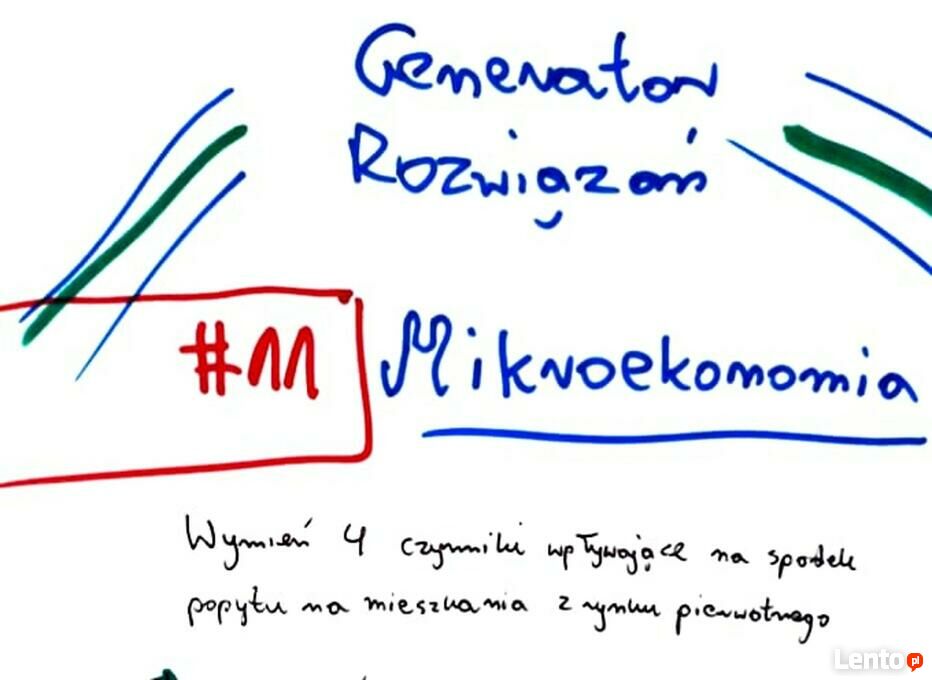 Generator
Rozwiązań
#11 Mikroekonomia
Wymień 4 czynniki wpływające na spadek
popytu na mieszkania z rynku pierwotnego
Lento.pl